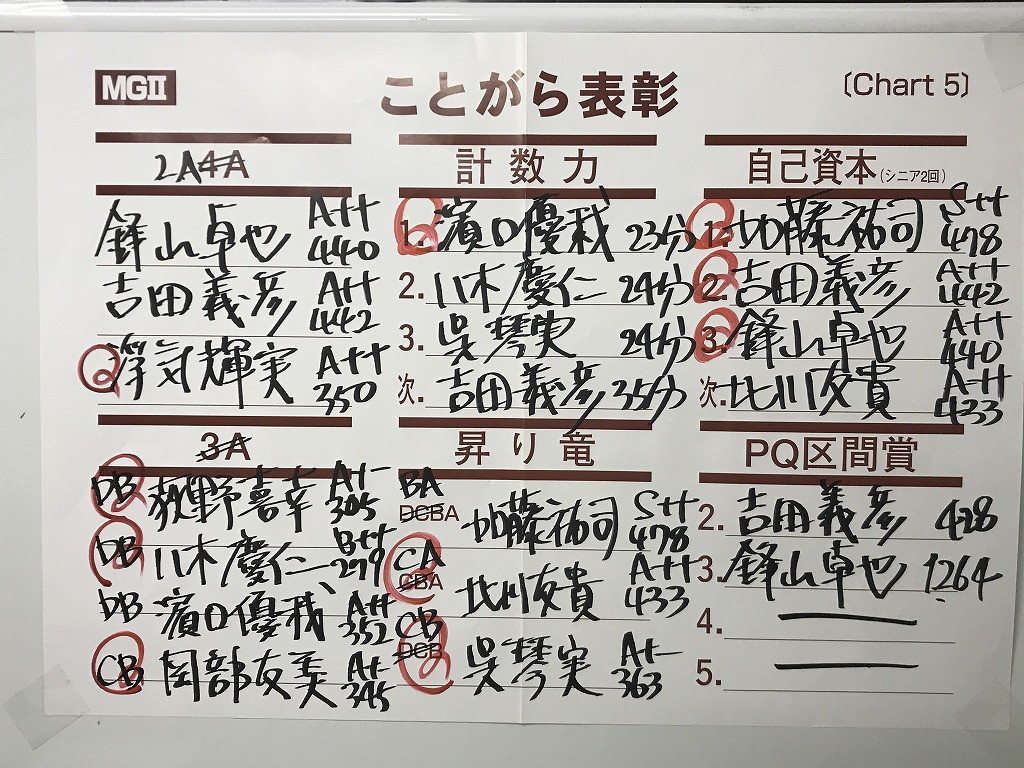 MGⅡ
ことがら表彰
〔Chart 5〕
2A4A
鋒山卓也 A++ 440
吉田義彦 A++ 442
浮気輝実 A++ 350
計数力
1. 濱口優我 23分
2. 八木慶仁 24分
3. 呉琴実 24分
次. 吉田義彦 35分
自己資本(シニア2回)
1. 加藤祐司 S++ 478
2. 吉田義彦 A++ 442
3. 鋒山卓也 A++ 440
次. 北川友貴 A++ 433
3A
DB 荻野喜幸 A+- 305
DB 八木慶仁 B++ 279
DB 濱口優我 A++ 352
CB 岡部友美 A+- 345
昇り竜
BA
DCBA 加藤祐司 S++ 478
CA
CBA 北川友貴 A++ 433
CB
DCB 呉琴実 A+- 363
PQ区間賞
2. 吉田義彦 428
3. 鋒山卓也 1264
4.
5.